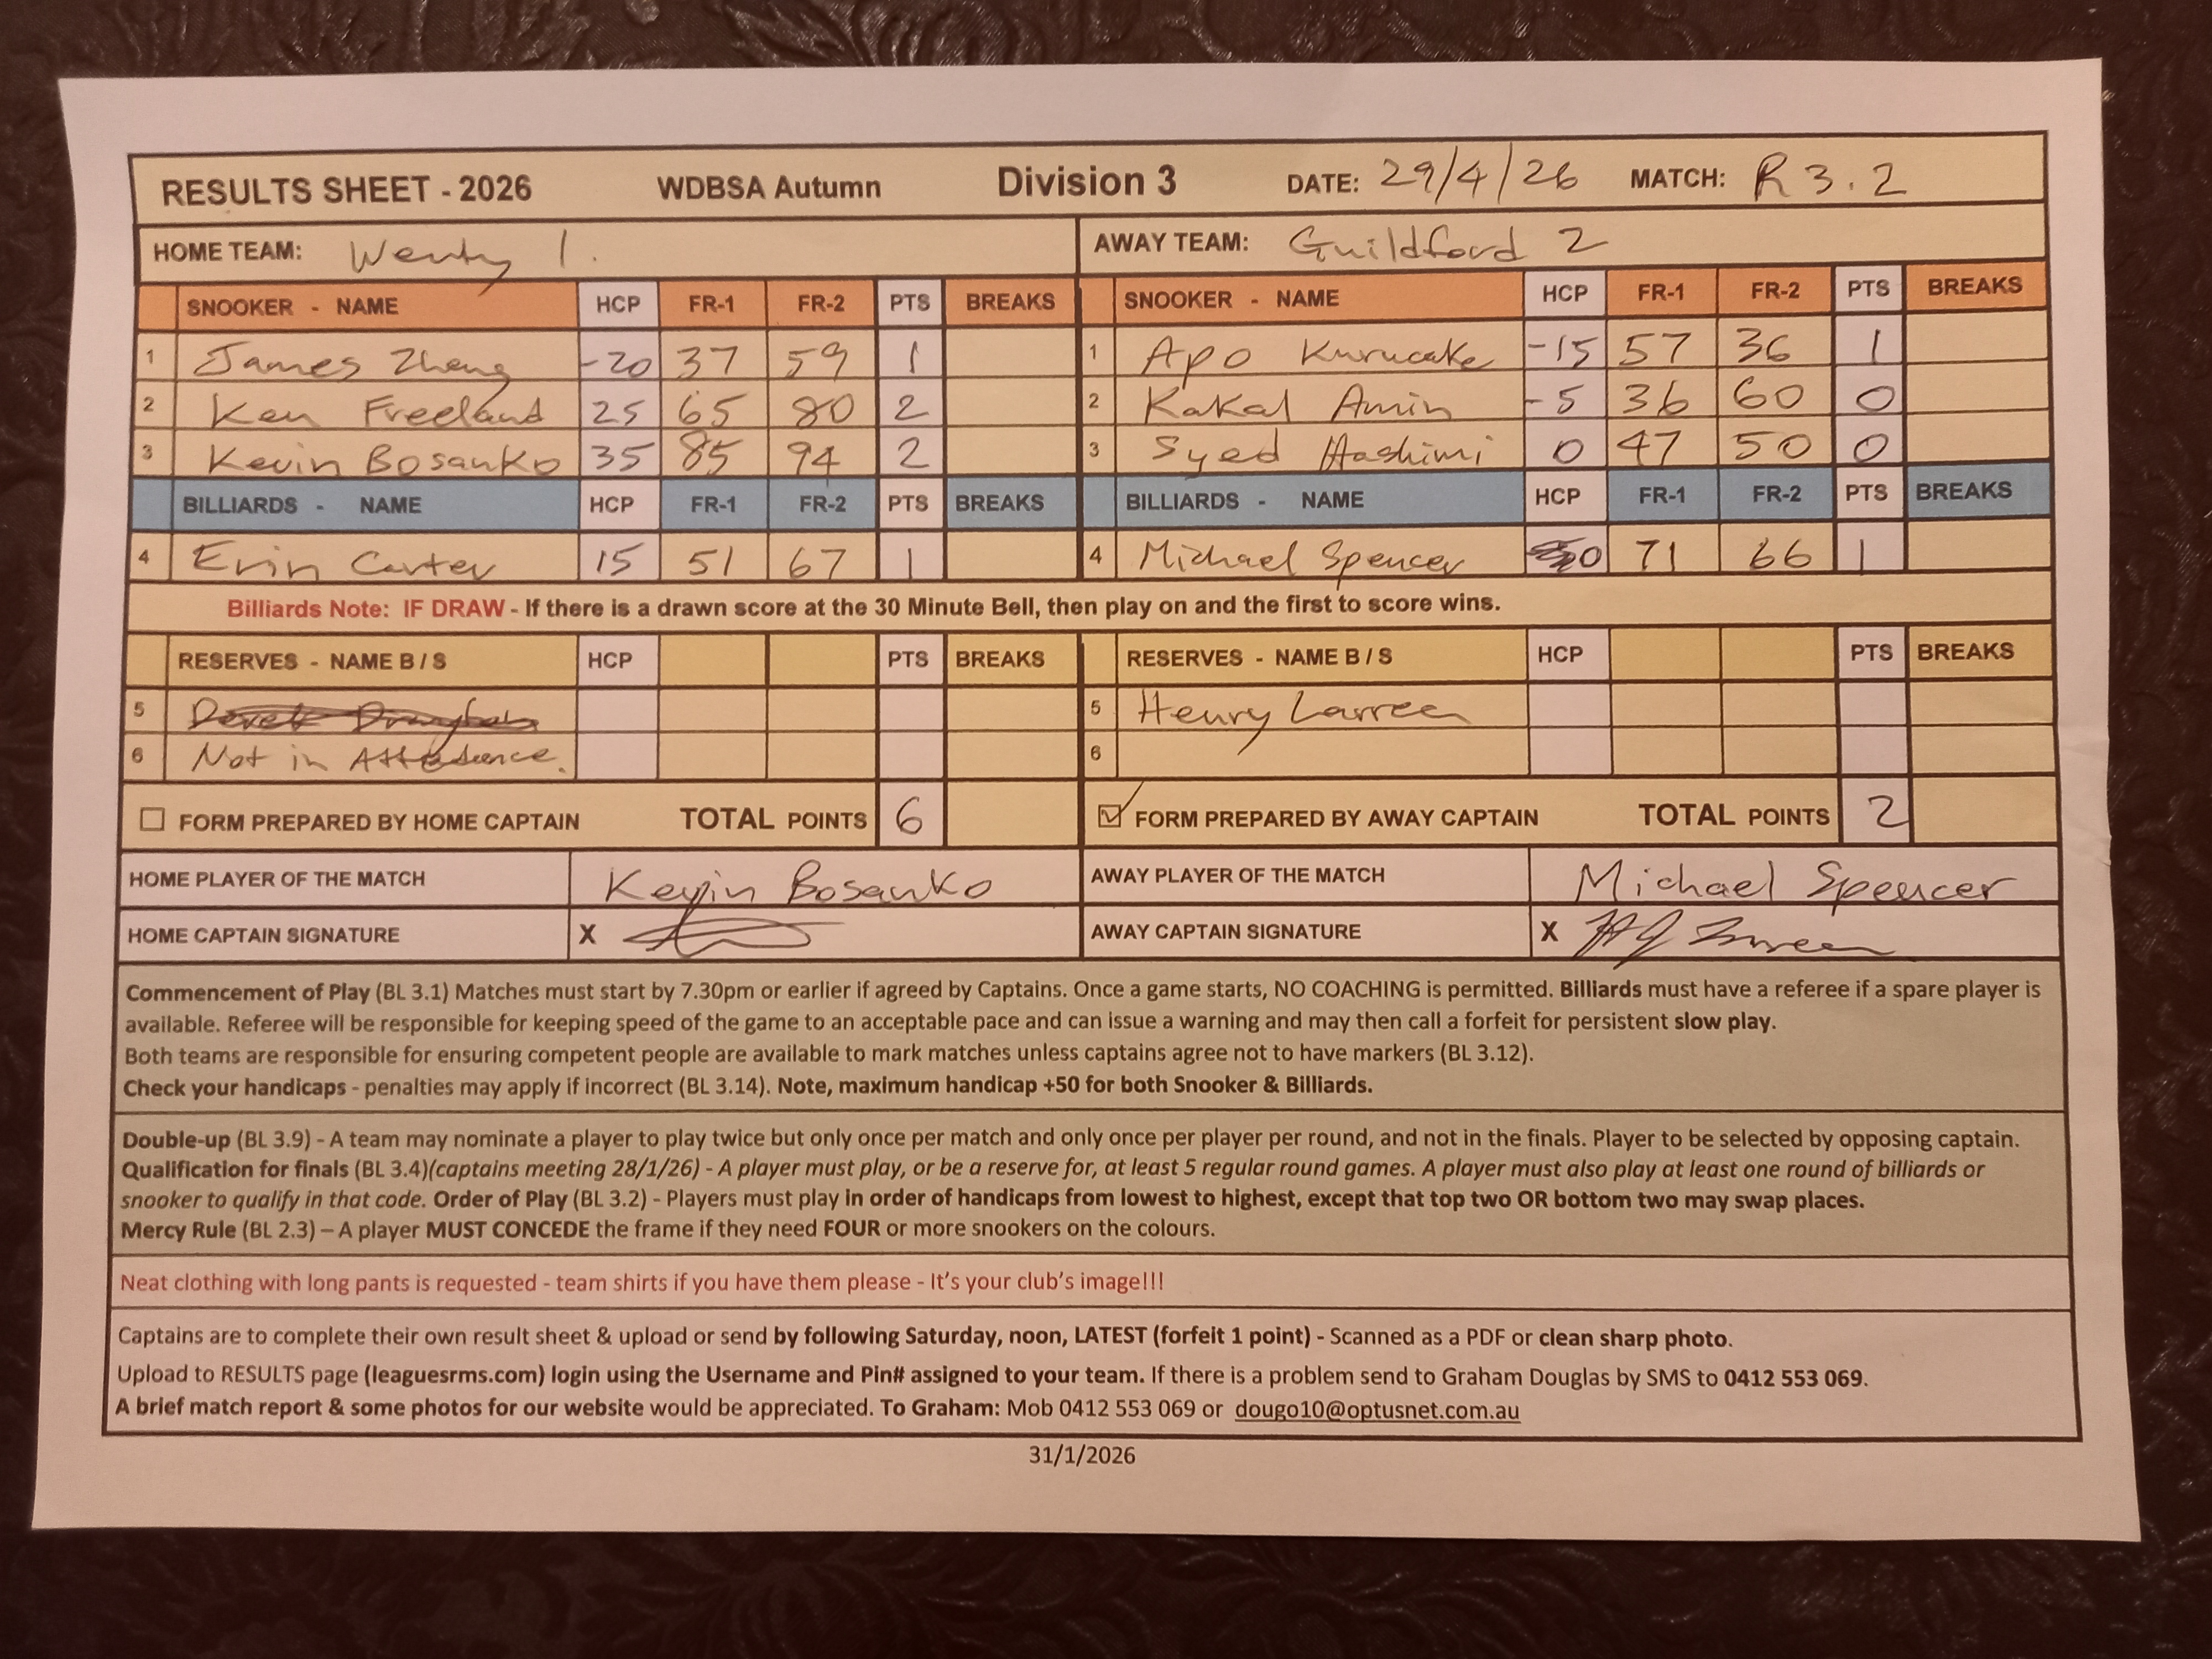 RESULTS SHEET - 2026 WDBSA Autumn Division 3 DATE: 29/4/26 MATCH: R 3.2
HOME TEAM: Wenty 1. AWAY TEAM: Guildford 2
SNOOKER - NAME HCP FR-1 FR-2 PTS BREAKS SNOOKER - NAME HCP FR-1 FR-2 PTS BREAKS
1 James Zheng -20 37 59 1 1 Apo Kurucake -15 57 36 1
2 Ken Freeland 25 65 80 2 2 Kakal Amin -5 36 60 0
3 Kevin Bosanko 35 85 94 2 3 Syed Hashimi 0 47 50 0
BILLIARDS - NAME HCP FR-1 FR-2 PTS BREAKS BILLIARDS - NAME HCP FR-1 FR-2 PTS BREAKS
4 Erin Carter 15 51 67 1 4 Michael Spencer 0 71 66 1
Billiards Note: IF DRAW - If there is a drawn score at the 30 Minute Bell, then play on and the first to score wins.
RESERVES - NAME B / S HCP PTS BREAKS RESERVES - NAME B / S HCP PTS BREAKS
5 Derek 5 Henry Larreen
6 Not in Attedance. 6
FORM PREPARED BY HOME CAPTAIN TOTAL POINTS 6 FORM PREPARED BY AWAY CAPTAIN TOTAL POINTS 2
HOME PLAYER OF THE MATCH Kevin Bosanko AWAY PLAYER OF THE MATCH Michael Spencer
HOME CAPTAIN SIGNATURE X AWAY CAPTAIN SIGNATURE X
Commencement of Play (BL 3.1) Matches must start by 7.30pm or earlier if agreed by Captains. Once a game starts, NO COACHING is permitted. Billiards must have a referee if a spare player is
available. Referee will be responsible for keeping speed of the game to an acceptable pace and can issue a warning and may then call a forfeit for persistent slow play.
Both teams are responsible for ensuring competent people are available to mark matches unless captains agree not to have markers (BL 3.12).
Check your handicaps - penalties may apply if incorrect (BL 3.14). Note, maximum handicap +50 for both Snooker & Billiards.
Double-up (BL 3.9) - A team may nominate a player to play twice but only once per match and only once per player per round, and not in the finals. Player to be selected by opposing captain.
Qualification for finals (BL 3.4)(captains meeting 28/1/26) - A player must play, or be a reserve for, at least 5 regular round games. A player must also play at least one round of billiards or
snooker to qualify in that code. Order of Play (BL 3.2) - Players must play in order of handicaps from lowest to highest, except that top two OR bottom two may swap places.
Mercy Rule (BL 2.3) – A player MUST CONCEDE the frame if they need FOUR or more snookers on the colours.
Neat clothing with long pants is requested - team shirts if you have them please - It's your club's image!!!
Captains are to complete their own result sheet & upload or send by following Saturday, noon, LATEST (forfeit 1 point) - Scanned as a PDF or clean sharp photo.
Upload to RESULTS page (leaguesrms.com) login using the Username and Pin# assigned to your team. If there is a problem send to Graham Douglas by SMS to 0412 553 069.
A brief match report & some photos for our website would be appreciated. To Graham: Mob 0412 553 069 or dougo10@optusnet.com.au
31/1/2026